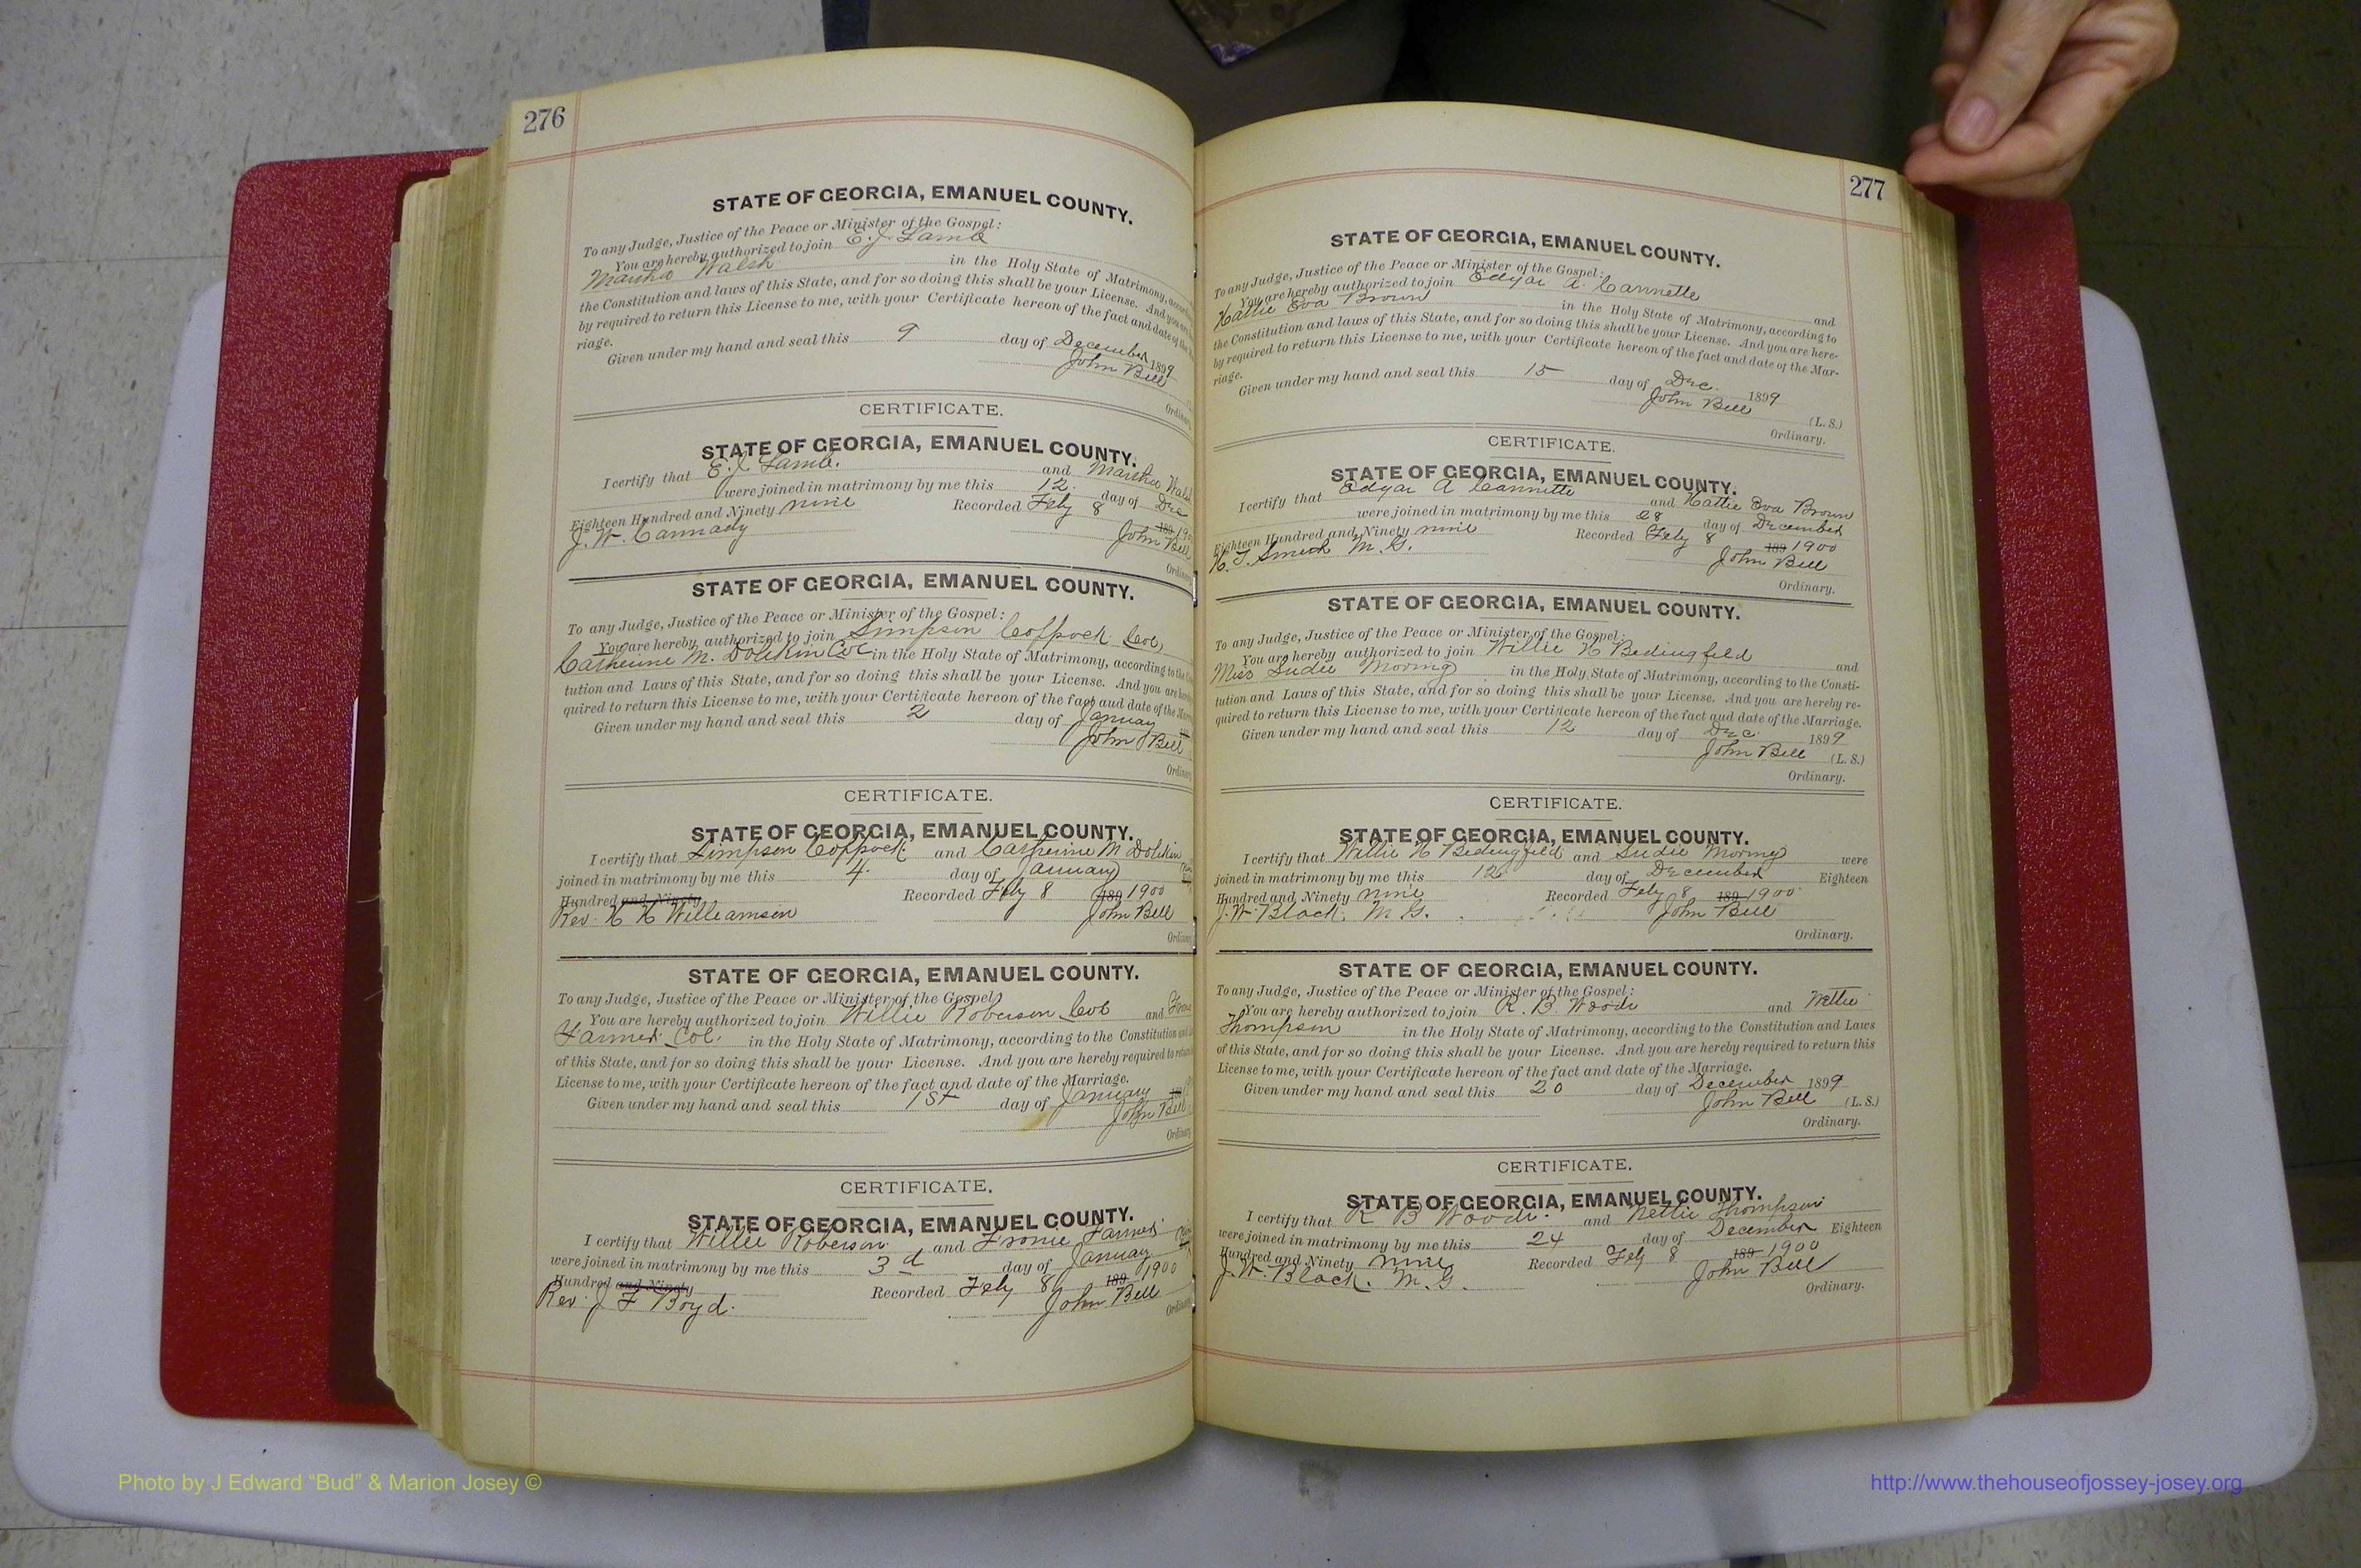 276
STATE OF GEORGIA, EMANUEL COUNTY.
To any Judge, Justice of the Peace or Minister of the Gospel:
You are hereby authorized to join E. J. Lamb
Martha Walsh in the Holy State of Matrimony,
the Constitution and laws of this State, and for so doing this shall be your License. And you are
by required to return this License to me, with your Certificate hereon of the fact and date of the
riage.
Given under my hand and seal this 9 day of December 1899
John Bell
Ordinary.
CERTIFICATE.
STATE OF GEORGIA, EMANUEL COUNTY.
I certify that E. J. Lamb. and Martha Walsh
were joined in matrimony by me this 12. day of Dec
Eighteen Hundred and Ninety nine Recorded Feby 8 189
J. W. Cannady John Bell
Ordinary
STATE OF GEORGIA, EMANUEL COUNTY.
To any Judge, Justice of the Peace or Minister of the Gospel:
You are hereby authorized to join Simpson Coffpock Col,
Catherine M. Col in the Holy State of Matrimony, according to the
tution and Laws of this State, and for so doing this shall be your License. And you are
quired to return this License to me, with your Certificate hereon of the fact and date of the
Given under my hand and seal this 2 day of January
John Bell
Ordinary
CERTIFICATE.
STATE OF GEORGIA, EMANUEL COUNTY.
I certify that Simpson Coffpock and Catherine M
joined in matrimony by me this 4. day of January
Hundred and Ninety Recorded Feby 8 189 1900
Rev. H H Williamson John Bell
Ordinary
STATE OF GEORGIA, EMANUEL COUNTY.
To any Judge, Justice of the Peace or Minister of the Gospel:
You are hereby authorized to join Willie Roberson Col and
Farmer Col. in the Holy State of Matrimony, according to the Constitution
of this State, and for so doing this shall be your License. And you are hereby required to return
License to me, with your Certificate hereon of the fact and date of the Marriage.
Given under my hand and seal this 1st day of January
John Bell
Ordinary
CERTIFICATE.
STATE OF GEORGIA, EMANUEL COUNTY.
I certify that Willie Roberson and Fronie Farmer
were joined in matrimony by me this 3d day of January
Hundred and Ninety Recorded Feby 8 189 1900
Rev. J F Boyd. John Bell
Ordinary
277
STATE OF GEORGIA, EMANUEL COUNTY.
To any Judge, Justice of the Peace or Minister of the Gospel:
You are hereby authorized to join Edgar A. Cannette
and
Hattie Eva Brown in the Holy State of Matrimony, according to
the Constitution and laws of this State, and for so doing this shall be your License. And you are here-
by required to return this License to me, with your Certificate hereon of the fact and date of the Mar-
riage.
Given under my hand and seal this 15 day of Dec. 1899
John Bell (L. S.)
Ordinary.
CERTIFICATE.
STATE OF GEORGIA, EMANUEL COUNTY.
I certify that Edgar A Cannette and Hattie Eva Brown
were joined in matrimony by me this 28 day of December
Eighteen Hundred and Ninety nine Recorded Feby 8 189 1900
H. T. Smith M. G. John Bell
Ordinary.
STATE OF GEORGIA, EMANUEL COUNTY.
To any Judge, Justice of the Peace or Minister of the Gospel:
You are hereby authorized to join Willie H Bedingfeld and
Miss Sudie Moring in the Holy State of Matrimony, according to the Consti-
tution and Laws of this State, and for so doing this shall be your License. And you are hereby re-
quired to return this License to me, with your Certificate hereon of the fact and date of the Marriage.
Given under my hand and seal this 12 day of Dec. 1899
John Bell (L. S.)
Ordinary.
CERTIFICATE.
STATE OF GEORGIA, EMANUEL COUNTY.
I certify that Willie H Bedingfeld and Sudie Moring were
joined in matrimony by me this 12 day of December Eighteen
Hundred and Ninety nine Recorded Feby 8 189 1900
J. W. Black. M. G. John Bell
Ordinary.
STATE OF GEORGIA, EMANUEL COUNTY.
To any Judge, Justice of the Peace or Minister of the Gospel:
You are hereby authorized to join R. B. Woods and Nettie
Thompson in the Holy State of Matrimony, according to the Constitution and Laws
of this State, and for so doing this shall be your License. And you are hereby required to return this
License to me, with your Certificate hereon of the fact and date of the Marriage.
Given under my hand and seal this 20 day of December 1899
John Bell (L. S.)
Ordinary.
CERTIFICATE.
STATE OF GEORGIA, EMANUEL COUNTY.
I certify that R B Woods. and Nettie Thompson
were joined in matrimony by me this 24 day of December Eighteen
Hundred and Ninety nine Recorded Feby 8 189 1900
J. W. Black. M. G. John Bell
Ordinary.
Photo by J Edward “Bud” & Marion Josey ©
http://www.thehouseofjossey-josey.org